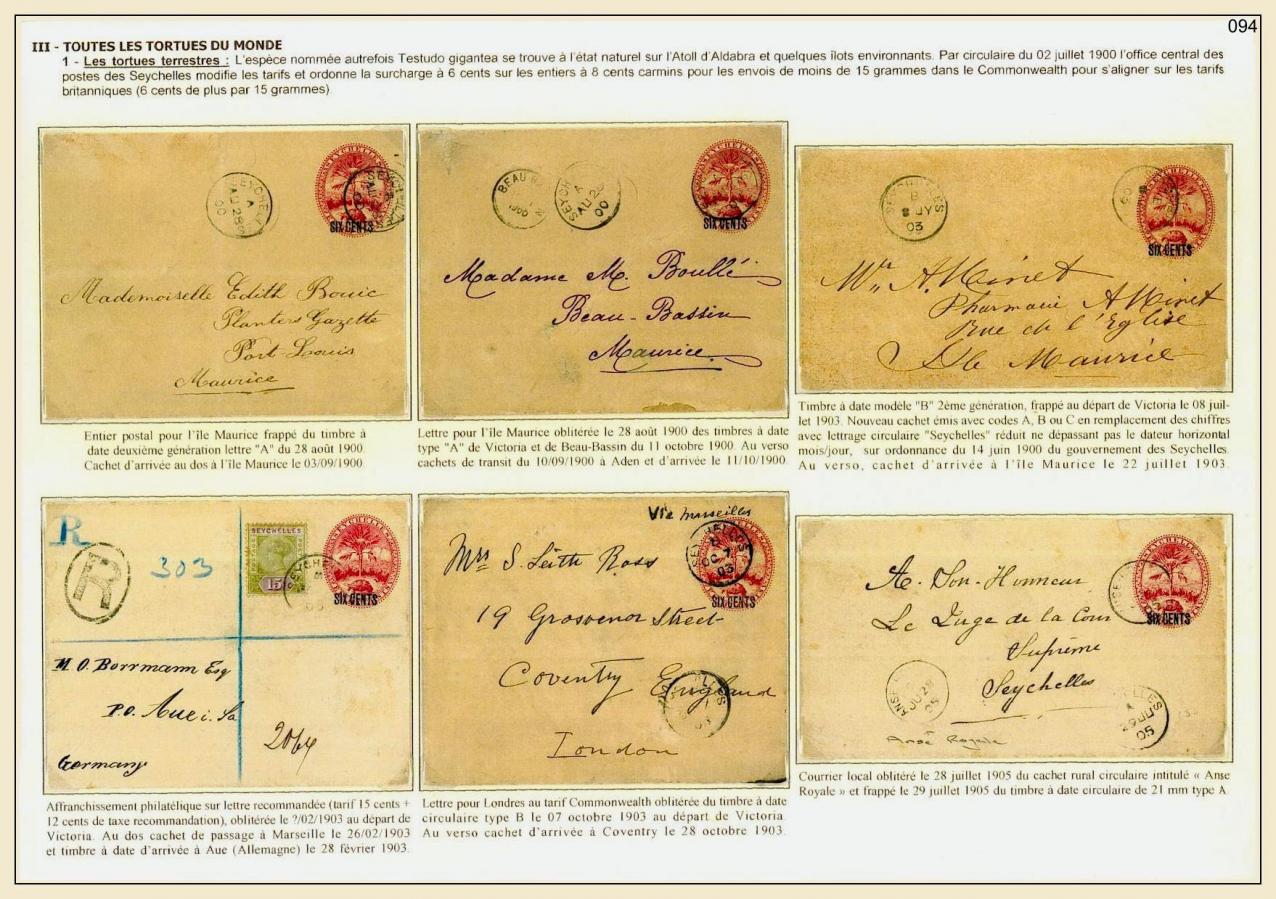 094
III - TOUTES LES TORTUES DU MONDE
1 - Les tortues terrestres : L'espèce nommée autrefois Testudo gigantea se trouve à l'état naturel sur l'Atoll d'Aldabra et quelques îlots environnants. Par circulaire du 02 juillet 1900 l'office central des
postes des Seychelles modifie les tarifs et ordonne la surcharge à 6 cents sur les entiers à 8 cents carmins pour les envois de moins de 15 grammes dans le Commonwealth pour s'aligner sur les tarifs
britanniques (6 cents de plus par 15 grammes).
SEYCHELLES
A
AU 28
00
SIX CENTS
Mademoiselle Edith Bouic
Planters Gazette
Port-Louis
Maurice
Entier postal pour l'île Maurice frappé du timbre à
date deuxième génération lettre "A" du 28 août 1900.
Cachet d'arrivée au dos à l'île Maurice le 03/09/1900.
BEAU
1900
A
AU 28
00
SIX CENTS
Madame M. Boullé
Beau-Bassin
Maurice.
Lettre pour l'île Maurice oblitérée le 28 août 1900 des timbres à date
type "A" de Victoria et de Beau-Bassin du 11 octobre 1900. Au verso
cachets de transit du 10/09/1900 à Aden et d'arrivée le 11/10/1900.
SEYCHELLES
B
8 JY
03
SIX CENTS
A. Minet
Pharmacie A Minet
Rue de l'Eglise
Ile Maurice
Timbre à date modèle "B" 2ème génération, frappé au départ de Victoria le 08 juil-
let 1903. Nouveau cachet émis avec codes A, B ou C en remplacement des chiffres
avec lettrage circulaire "Seychelles" réduit ne dépassant pas le dateur horizontal
mois/jour, sur ordonnance du 14 juin 1900 du gouvernement des Seychelles.
Au verso, cachet d'arrivée à l'île Maurice le 22 juillet 1903.
R
R
303
SEYCHELLES
15c
SIX CENTS
M. O. Borrmann Esq
P.O. Aue i. Sa
2064
Germany
Affranchissement philatélique sur lettre recommandée (tarif 15 cents +
12 cents de taxe recommandation), oblitérée le ?/02/1903 au départ de
Victoria. Au dos cachet de passage à Marseille le 26/02/1903
et timbre à date d'arrivée à Aue (Allemagne) le 28 février 1903.
Via Marseilles
SEYCHELLES
B
OC 7
03
SIX CENTS
Mrs S. Leith Ross
19 Grosvenor Street
Coventry England
London
Lettre pour Londres au tarif Commonwealth oblitérée du timbre à date
circulaire type B le 07 octobre 1903 au départ de Victoria.
Au verso cachet d'arrivée à Coventry le 28 octobre 1903.
SIX CENTS
A. Son-Honneur
Le Juge de la Cour
Suprême
Seychelles
ANSE
JU 28
05
Anse Royale
A
29 JU
05
Courrier local oblitéré le 28 juillet 1905 du cachet rural circulaire intitulé « Anse
Royale » et frappé le 29 juillet 1905 du timbre à date circulaire de 21 mm type A.